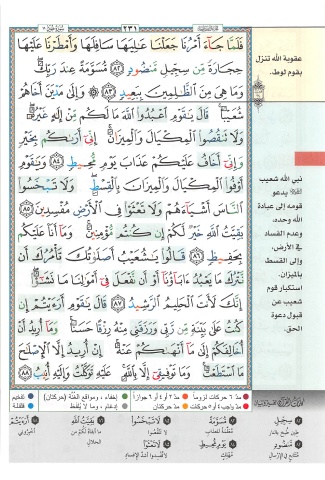 ٢٣١
فَلَمَّا جَآءَ أَمْرُنَا جَعَلْنَا عَـٰلِيَهَا سَافِلَهَا وَأَمْطَرْنَا عَلَيْهَا
حِجَارَةً مِّن سِجِّيلٍ مَّنضُودٍ ٨٢ مُّسَوَّمَةً عِندَ رَبِّكَ
وَمَا هِىَ مِنَ ٱلظَّـٰلِمِينَ بِبَعِيدٍ ٨٣ وَإِلَىٰ مَدْيَنَ أَخَاهُمْ
شُعَيْبًا قَالَ يَـٰقَوْمِ ٱعْبُدُوا۟ ٱللَّهَ مَا لَكُم مِّنْ إِلَـٰهٍ غَيْرُهُۥ
وَلَا تَنقُصُوا۟ ٱلْمِكْيَالَ وَٱلْمِيزَانَ إِنِّىٓ أَرَىٰكُم بِخَيْرٍ
وَإِنِّىٓ أَخَافُ عَلَيْكُمْ عَذَابَ يَوْمٍ مُّحِيطٍ ٨٤ وَيَـٰقَوْمِ
أَوْفُوا۟ ٱلْمِكْيَالَ وَٱلْمِيزَانَ بِٱلْقِسْطِ وَلَا تَبْخَسُوا۟
ٱلنَّاسَ أَشْيَآءَهُمْ وَلَا تَعْثَوْا۟ فِى ٱلْأَرْضِ مُفْسِدِينَ ٨٥
بَقِيَّتُ ٱللَّهِ خَيْرٌ لَّكُمْ إِن كُنتُم مُّؤْمِنِينَ وَمَآ أَنَا۠ عَلَيْكُم
بِحَفِيظٍ ٨٦ قَالُوا۟ يَـٰشُعَيْبُ أَصَلَوٰتُكَ تَأْمُرُكَ أَن
نَّتْرُكَ مَا يَعْبُدُ ءَابَآؤُنَآ أَوْ أَن نَّفْعَلَ فِىٓ أَمْوَٰلِنَا مَا نَشَـٰٓؤُا۟
إِنَّكَ لَأَنتَ ٱلْحَلِيمُ ٱلرَّشِيدُ ٨٧ قَالَ يَـٰقَوْمِ أَرَءَيْتُمْ إِن
كُنتُ عَلَىٰ بَيِّنَةٍ مِّن رَّبِّى وَرَزَقَنِى مِنْهُ رِزْقًا حَسَنًا وَمَآ أُرِيدُ أَنْ
أُخَالِفَكُمْ إِلَىٰ مَآ أَنْهَىٰكُمْ عَنْهُ إِنْ أُرِيدُ إِلَّا ٱلْإِصْلَـٰحَ
مَا ٱسْتَطَعْتُ وَمَا تَوْفِيقِىٓ إِلَّا بِٱللَّهِ عَلَيْهِ تَوَكَّلْتُ وَإِلَيْهِ أُنِيبُ ٨٨
عقوبة الله تنزل
بقوم لوط.
نبي الله شعيب
يدعو
قومه إلى عبادة
الله وحده،
وعدم الفساد
في الأرض،
وإلى القسط
بالميزان.
استكبار قوم
شعيب عن
قبول دعوة
الحق.
مدّ ٦ حركات لزوماً مدّ ٢ أو ٤ أو ٦ جوازاً إخفاء، ومواقع الغُنَّة (حركتان) تفخيم
مدّ حركتان إدغام، وما لا يُلفظ قلقلة
سِجِّيلٍ
مَّنضُودٍ
مُّسَوَّمَةً
يَوْمٍ مُّحِيطٍ
لَا تَبْخَسُوا۟
لَا تَنقُصُوا
لَا تَعْثَوْا۟
بَقِيَّتُ ٱللَّهِ
أَرَءَيْتُمْ
أخبروني